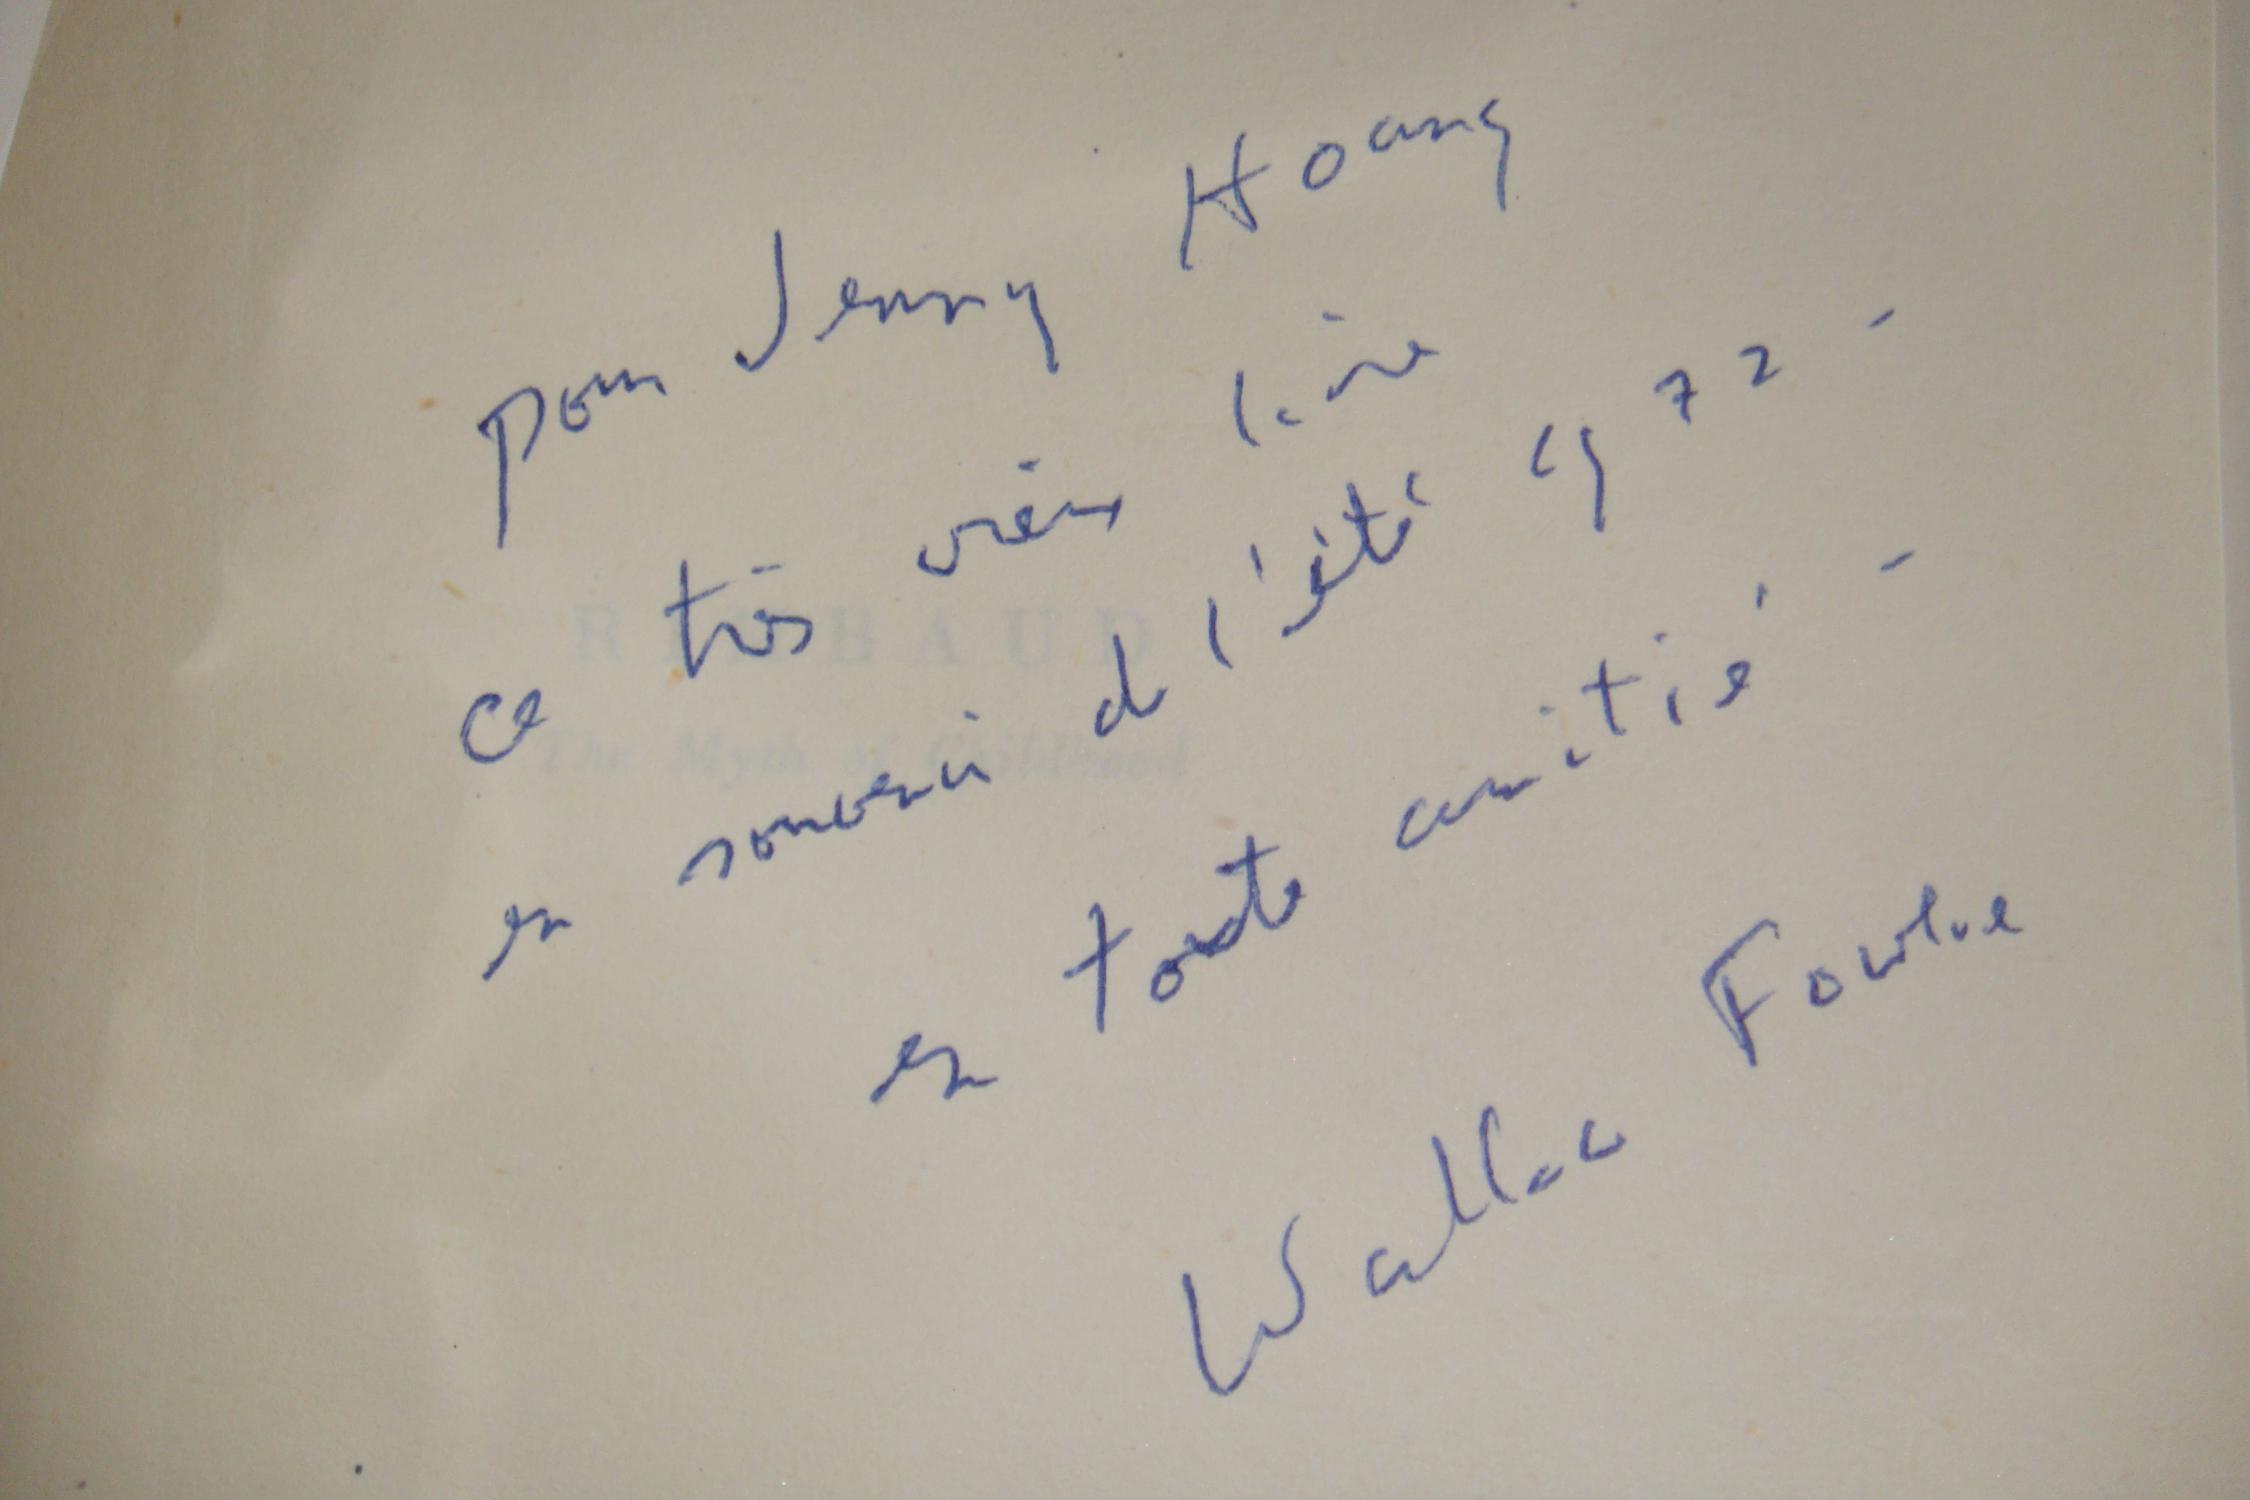 pour Jenny Hoang
ce très vieux livre
en souvenir de l'été 1972 -
en toute amitié -
Wallace Fowlie
RIMBAUD
The Myth of Childhood